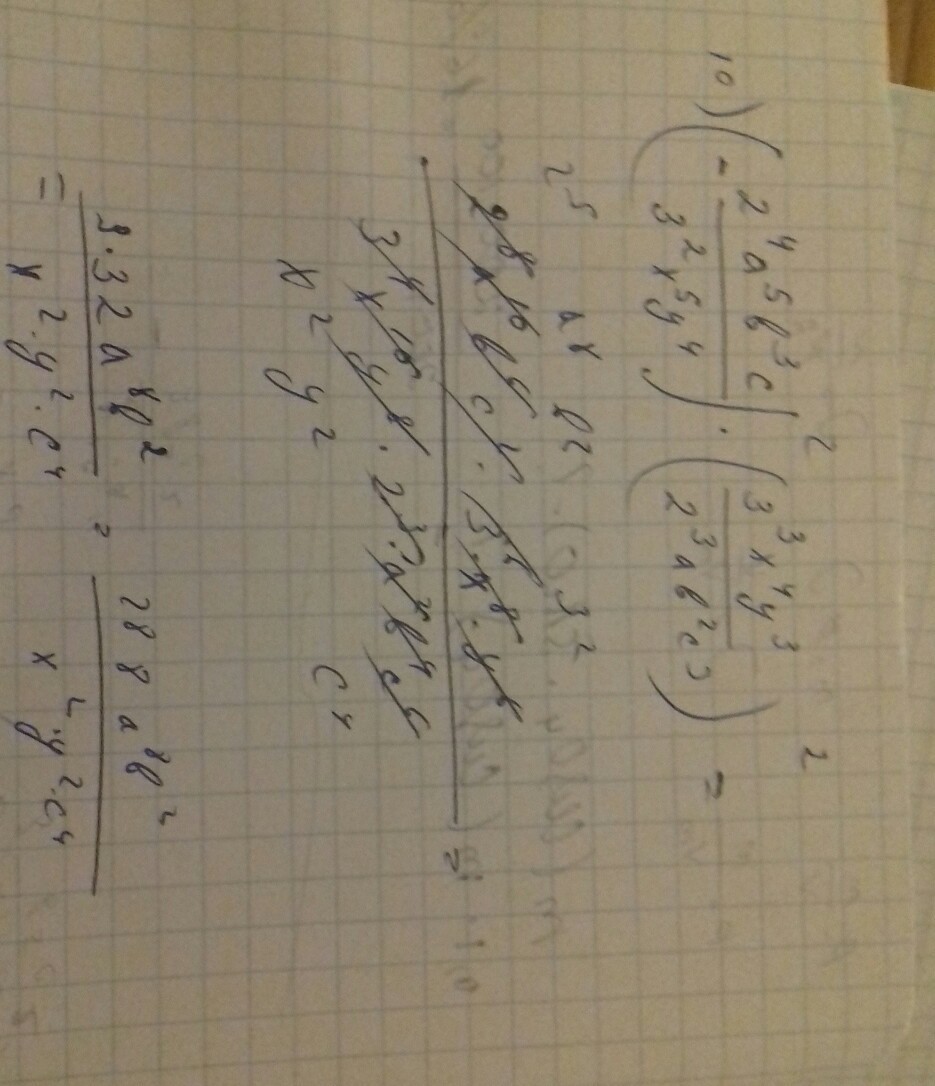 10) (- 2⁴a⁵b³c / 3²x⁵y⁴)² · (3³x⁴y³ / 2³ab²c³)² =
2⁵ a⁸ b² 3²
2⁸ x¹⁰ b⁶ c² · 3⁶ · x⁸ · y⁶
3⁴ x¹⁰ y⁸ · 2³·² a² b⁴ c⁶ =
x² y² c⁴
= 9·32a⁸b² / x²·y²·c⁴ = 288a⁸b² / x²·y²·c⁴